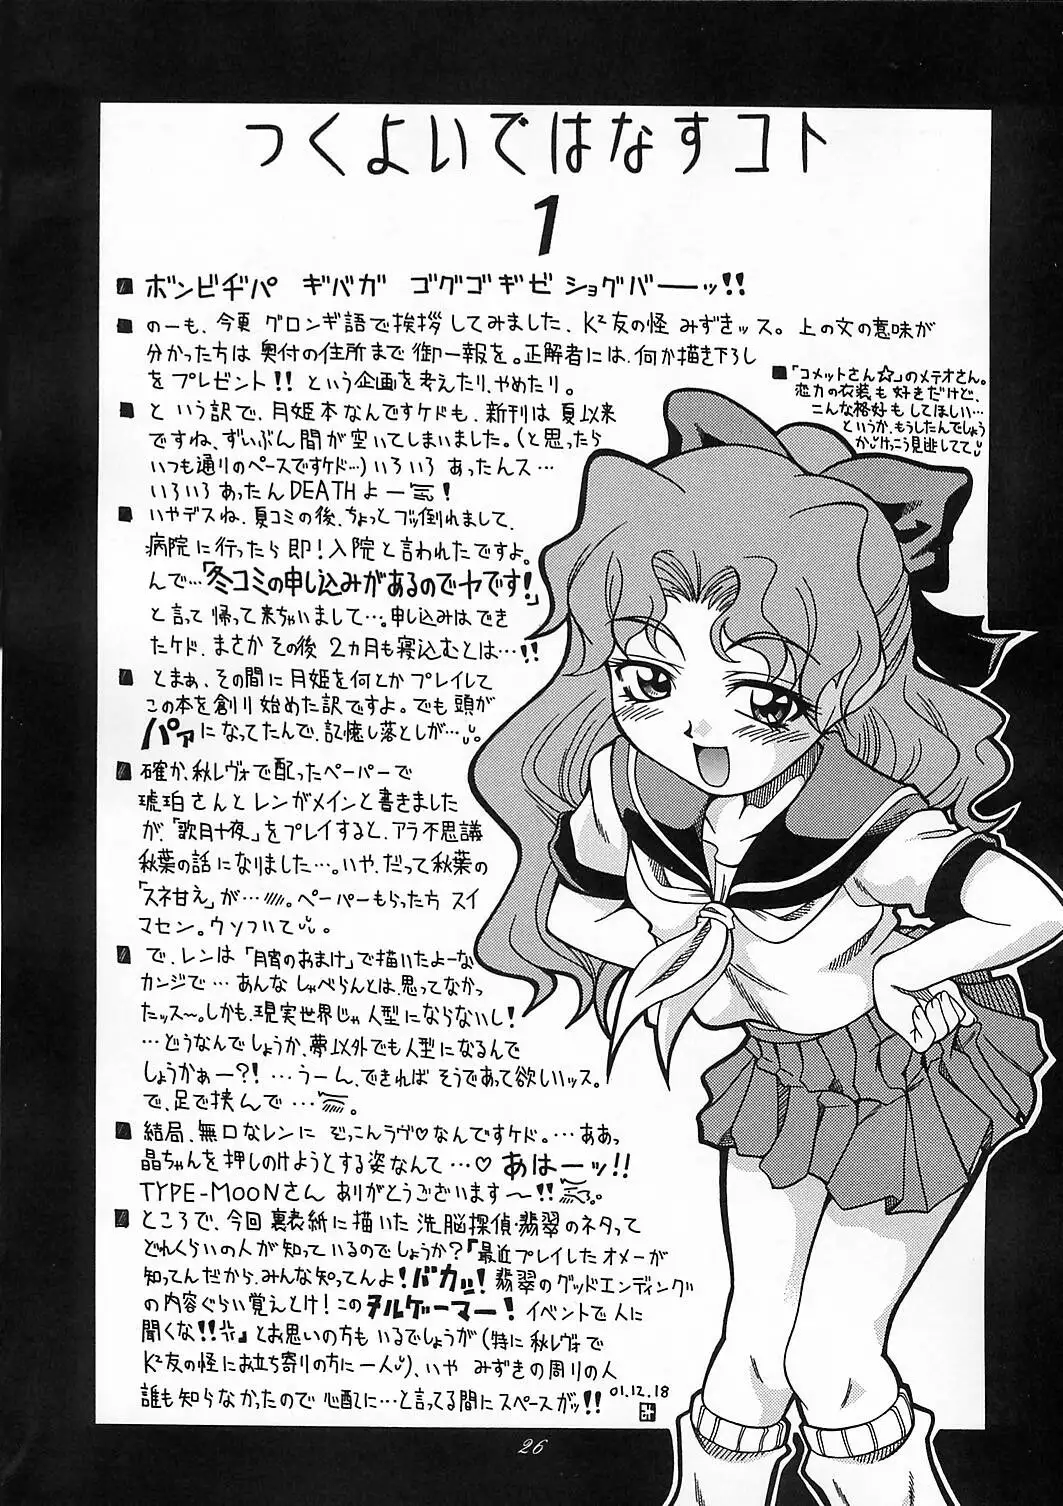 つくよいではなすコト
1
■ボンビヂパ ギバガ ゴグゴギゼ ショグバーーッ!!
■のーも、今更 グロンギ語で挨拶 してみました、K²友の怪 みずきッス。上の文の意味が
分かった方は 奥付の住所まで 御一報を。正解者には、何か描き下ろし
をプレゼント!! という企画を考えたり、やめたり。
■と いう訳で、月姫本なんですケドも、新刊は 夏以来
ですね、ずいぶん間が空いてしまいました。(と思ったら
いつも通りのペースですケド…)いろいろ あったんス…
いろいろ あったんDEATHよー!
■いやデスね、夏コミの後、ちょっとブッ倒れまして、
病院に行ったら 即!入院と言われたですよ。
んで…「冬コミの申し込みがあるのでヤです!」
と言って 帰って来ちゃいまして…。申し込みは でき
たケド、まさか その後 2ヵ月も寝込むとは…!!
■とまぁ、その間に 月姫を何とか プレイして
この本を創り始めた訳ですよ。でも 頭が
パァになってたんで、記憶し落としが…。
■確か、秋レヴォで配ったペーパーで
琥珀さんとレンがメインと書きました
が、「歌月十夜」をプレイすると、アラ不思議
秋葉の話になりました…。いや、だって秋葉の
「スネ甘え」が…。ペーパーもらった方 スイ
マセン。ウソついて。
■で、レンは「月宵のおまけ」で描いたよーな
カンジで… あんな しゃべらんとは、思ってなか
たッス〜。しかも、現実世界じゃ 人型にならないし!
…どうなんでしょうか、夢以外でも人型になるんで
しょうかぁー?! …うーん、できれば そうであって欲しいッス。
で、足で挟んで…。
■結局、無口なレンに ぞっこんラヴ♡なんですケド。…ああっ
晶ちゃんを押しのけようとする姿なんて…♡ あはーッ!!
TYPE-MOONさん ありがとうございます〜!!。
■ところで、今回 裏表紙に描いた 洗脳探偵・翡翠のネタって
どれくらいの人が知っているのでしょうか?「最近プレイしたオメーが
知ってんだから、みんな知ってんよ!バカッ!翡翠のグッドエンディング
の内容ぐらい覚えとけ!このヌルゲーマー!イベントで人に
聞くな!!」とお思いの方も いるでしょうが(特に 秋レヴォで
K²友の怪にお立ち寄りの方に一人)、いや みずきの周りの人
誰も知らなかったので 心配に…と言ってる間にスペースがッ!!
01.12.18
み
■「コメットさん☆」のメテオさん。
恋力の衣装も 好きだけど、
こんな格好も してほしい…
というか、もうしたんでしょう
か。けっこう見逃してて
26